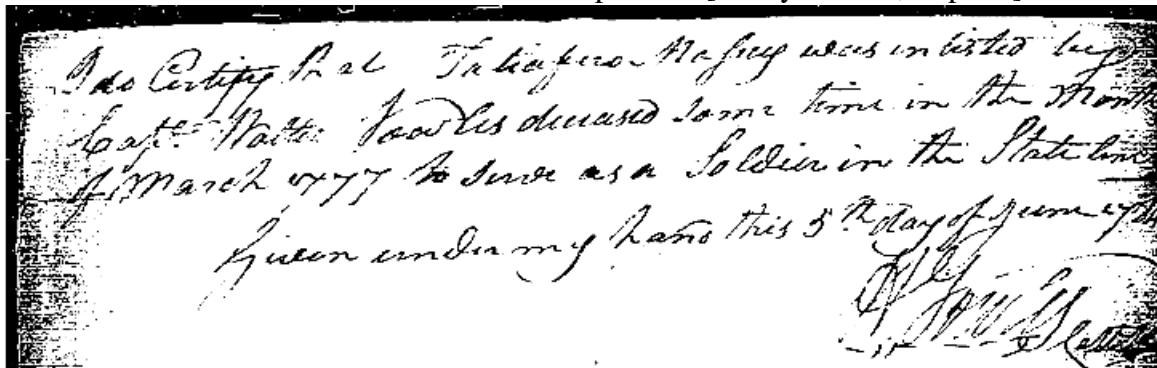 I do Certifye that Taliaferro Hughey was inlisted by
Capt. Walter Vowles deceased some time in the Month
of March 1777 to Serve as a Soldier in the State line
Given under my hand this 5th day of June 17